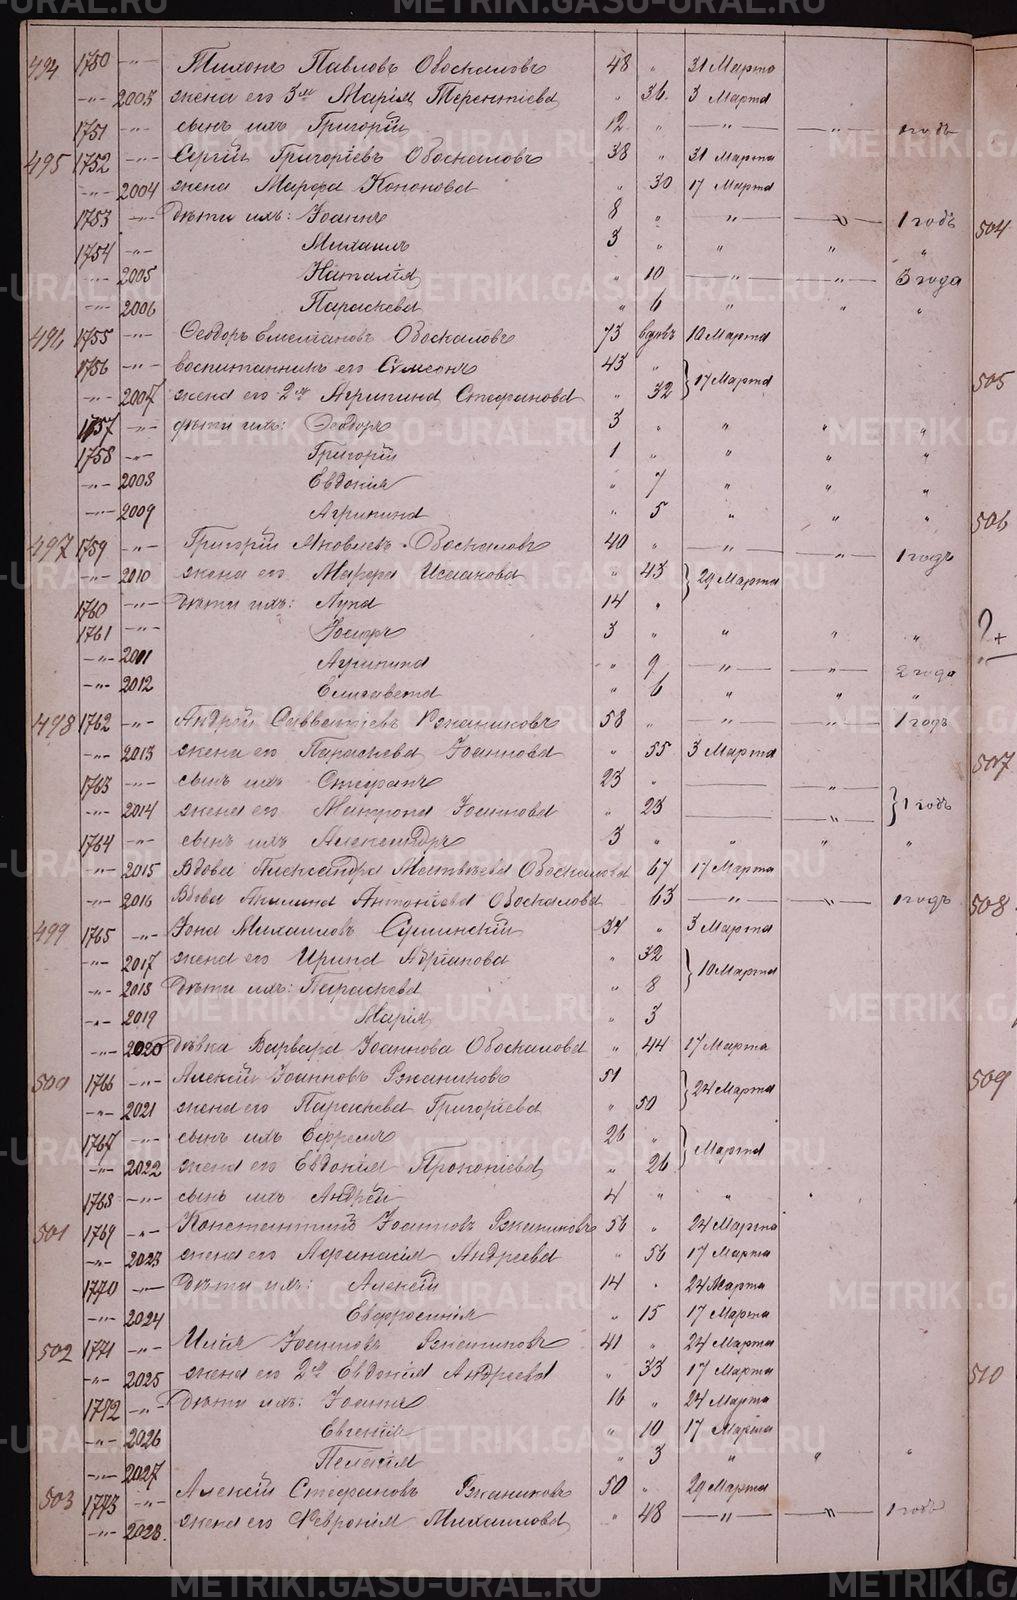 494 1750 -"- Тихонъ Павловъ Обоскаловъ 48 " 31 Марта
-"- 2003 жена его 3м Марія Терентіева " 36 3 Марта
1751 -"- сынъ ихъ Григорій 12 " -"- -"- 1 годъ
495 1752 -"- Сергій Григоріевъ Обоскаловъ 38 " 31 Марта
-"- 2004 жена Марфа Кононова " 30 17 Марта
1753 -"- Дѣти ихъ: Іоаннъ 8 " -"- -"- 1 годъ
1754 -"- Михаилъ 3 " " " "
-"- 2005 Наталія " 10 -"- -"- 3 года
-"- 2006 Параскева " 6 " " "
496 1755 -"- Ѳеодоръ Емеліановъ Обоскаловъ 73 вдовъ 10 Марта
1756 -"- воспитанникъ его Сѵмеонъ 43 " 17 Марта
-"- 2007 жена его 2м Агрипина Стефанова " 32
1757 -"- дѣти ихъ: Ѳеодоръ 3 " " " "
1758 -"- Григорій 1 " " " "
-"- 2008 Евдокія " 7 " " "
-"- 2009 Агрипина " 5 " " "
497 1759 -"- Григорій Яковлевъ Обоскаловъ 40 " -"- -"- 1 годъ
-"- 2010 жена его Марфа Исаакова " 43 29 Марта
1760 -"- Дѣти ихъ: Лупа 14 "
1761 -"- Іосифъ 3 " " " "
-"- 2001 Агрипина " 9 -"- -"- 2 года
-"- 2012 Елисавета " 6 " " "
498 1762 -"- Андрей Савватіевъ Ржаниковъ 58 " " -"- 1 годъ
-"- 2013 жена его Параскева Іоаннова " 55 3 Марта
1763 -"- сынъ ихъ Стефанъ 23 " -"- 1 годъ
-"- 2014 жена его Матрона Іоаннова " 23 -"-
1764 -"- сынъ ихъ Александръ 3 " " " "
-"- 2015 Вдова Александра Матвѣева Обоскалова 67 17 Марта
-"- 2016 Вдова Акилина Антоніева Обоскалова 63 -"- -"- 1 годъ
499 1765 -"- Іона Михаиловъ Сушинскій 34 " 3 Марта
-"- 2017 жена его Ирина Адріанова " 32 10 Марта
-"- 2018 Дѣти ихъ: Параскева " 8
-"- 2019 Марія " 3
-"- 2020 Дѣвка Варвара Іоаннова Обоскалова " 44 17 Марта
500 1766 -"- Алексій Іоанновъ Ржаниковъ 51 24 Марта
-"- 2021 жена его Параскева Григоріева " 50
1767 -"- сынъ ихъ Ефремъ 26 " Марта
-"- 2022 жена его Евдокія Прокопіева " 26
1768 -"- сынъ ихъ Андрей 4 " "
501 1769 -"- Константинъ Іоанновъ Ржаниковъ 56 " 24 Марта
-"- 2023 жена его Афанасія Андреева " 56 17 Марта
1770 -"- Дѣти ихъ: Алексій 14 " 24 Марта
-"- 2024 Евфросинія " 15 17 Марта
502 1771 -"- Илія Іоанновъ Ржаниковъ 41 " 24 Марта
-"- 2025 жена его 2м Евдокія Андреева " 33 17 Марта
1772 -"- Дѣти ихъ: Іоаннъ 16 " 24 Марта
-"- 2026 Евгенія " 10 17 Марта
-"- 2027 Пелагія " 3 " " "
503 1773 -"- Алексій Стефановъ Ржаниковъ 50 " 29 Марта
-"- 2028 жена его Февронія Михаилова " 48 -"- -"- 1 годъ
504
505
506
?+
507
508
509
510
METRIKI.GASO-URAL.RU